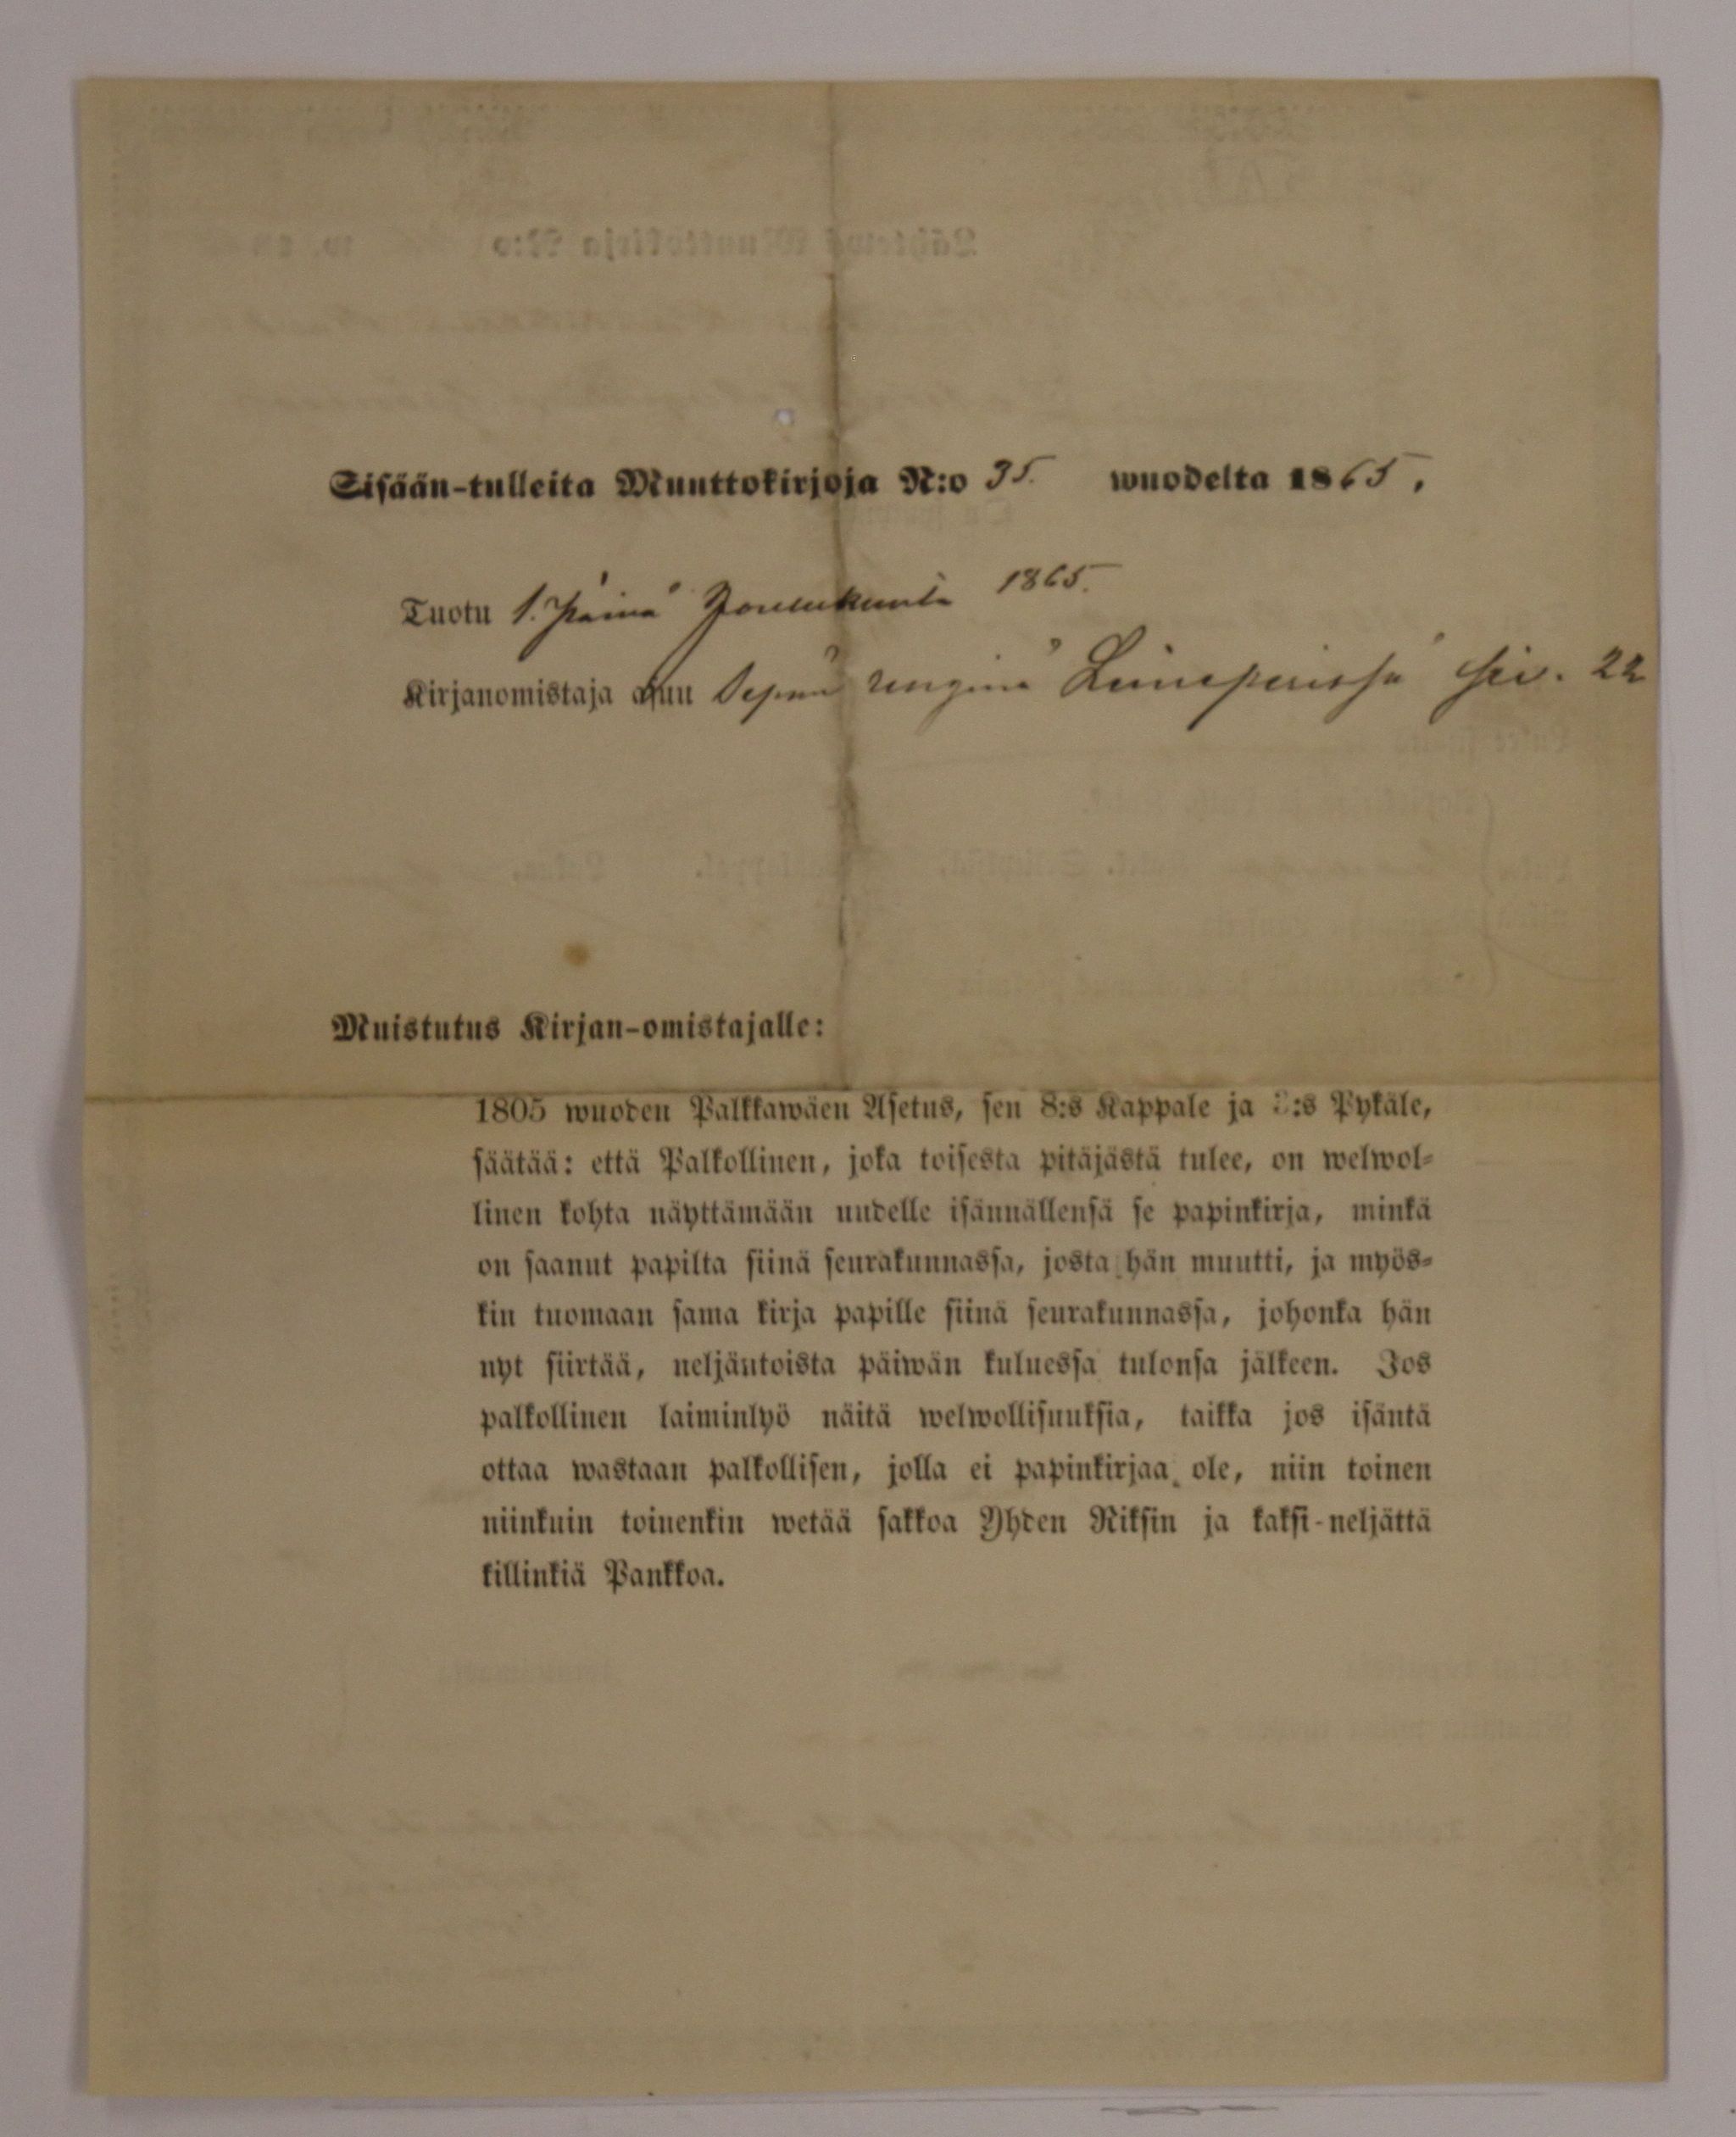 Sisään-tulleita Muuttokirjoja N:o 35. wuodelta 1865.
Tuotu 1. Päivä Joulukuuta 1865.
Kirjanomistaja asuu Sepän renginä Leineperissä siv. 22
Muistutus Kirjan-omistajalle:
1805 wuoden Palkkawäen Asetus, sen 8:s Kappale ja :s Pykäle,
säätää: että Palkollinen, joka toisesta pitäjästä tulee, on welwol-
linen kohta näyttämään uudelle isännällensä se papinkirja, minkä
on saanut papilta siinä seurakunnassa, josta hän muutti, ja myös-
kin tuomaan sama kirja papille siinä seurakunnassa, johonka hän
nyt siirtää, neljäntoista päiwän kuluessa tulonsa jälkeen. Jos
palkollinen laiminlyö näitä welwollisuuksia, taikka jos isäntä
ottaa wastaan palkollisen, jolla ei papinkirjaa ole, niin toinen
niinkuin toinenkin wetää sakkoa Yhden Riksin ja kaksi-neljättä
killinkiä Pankkoa.